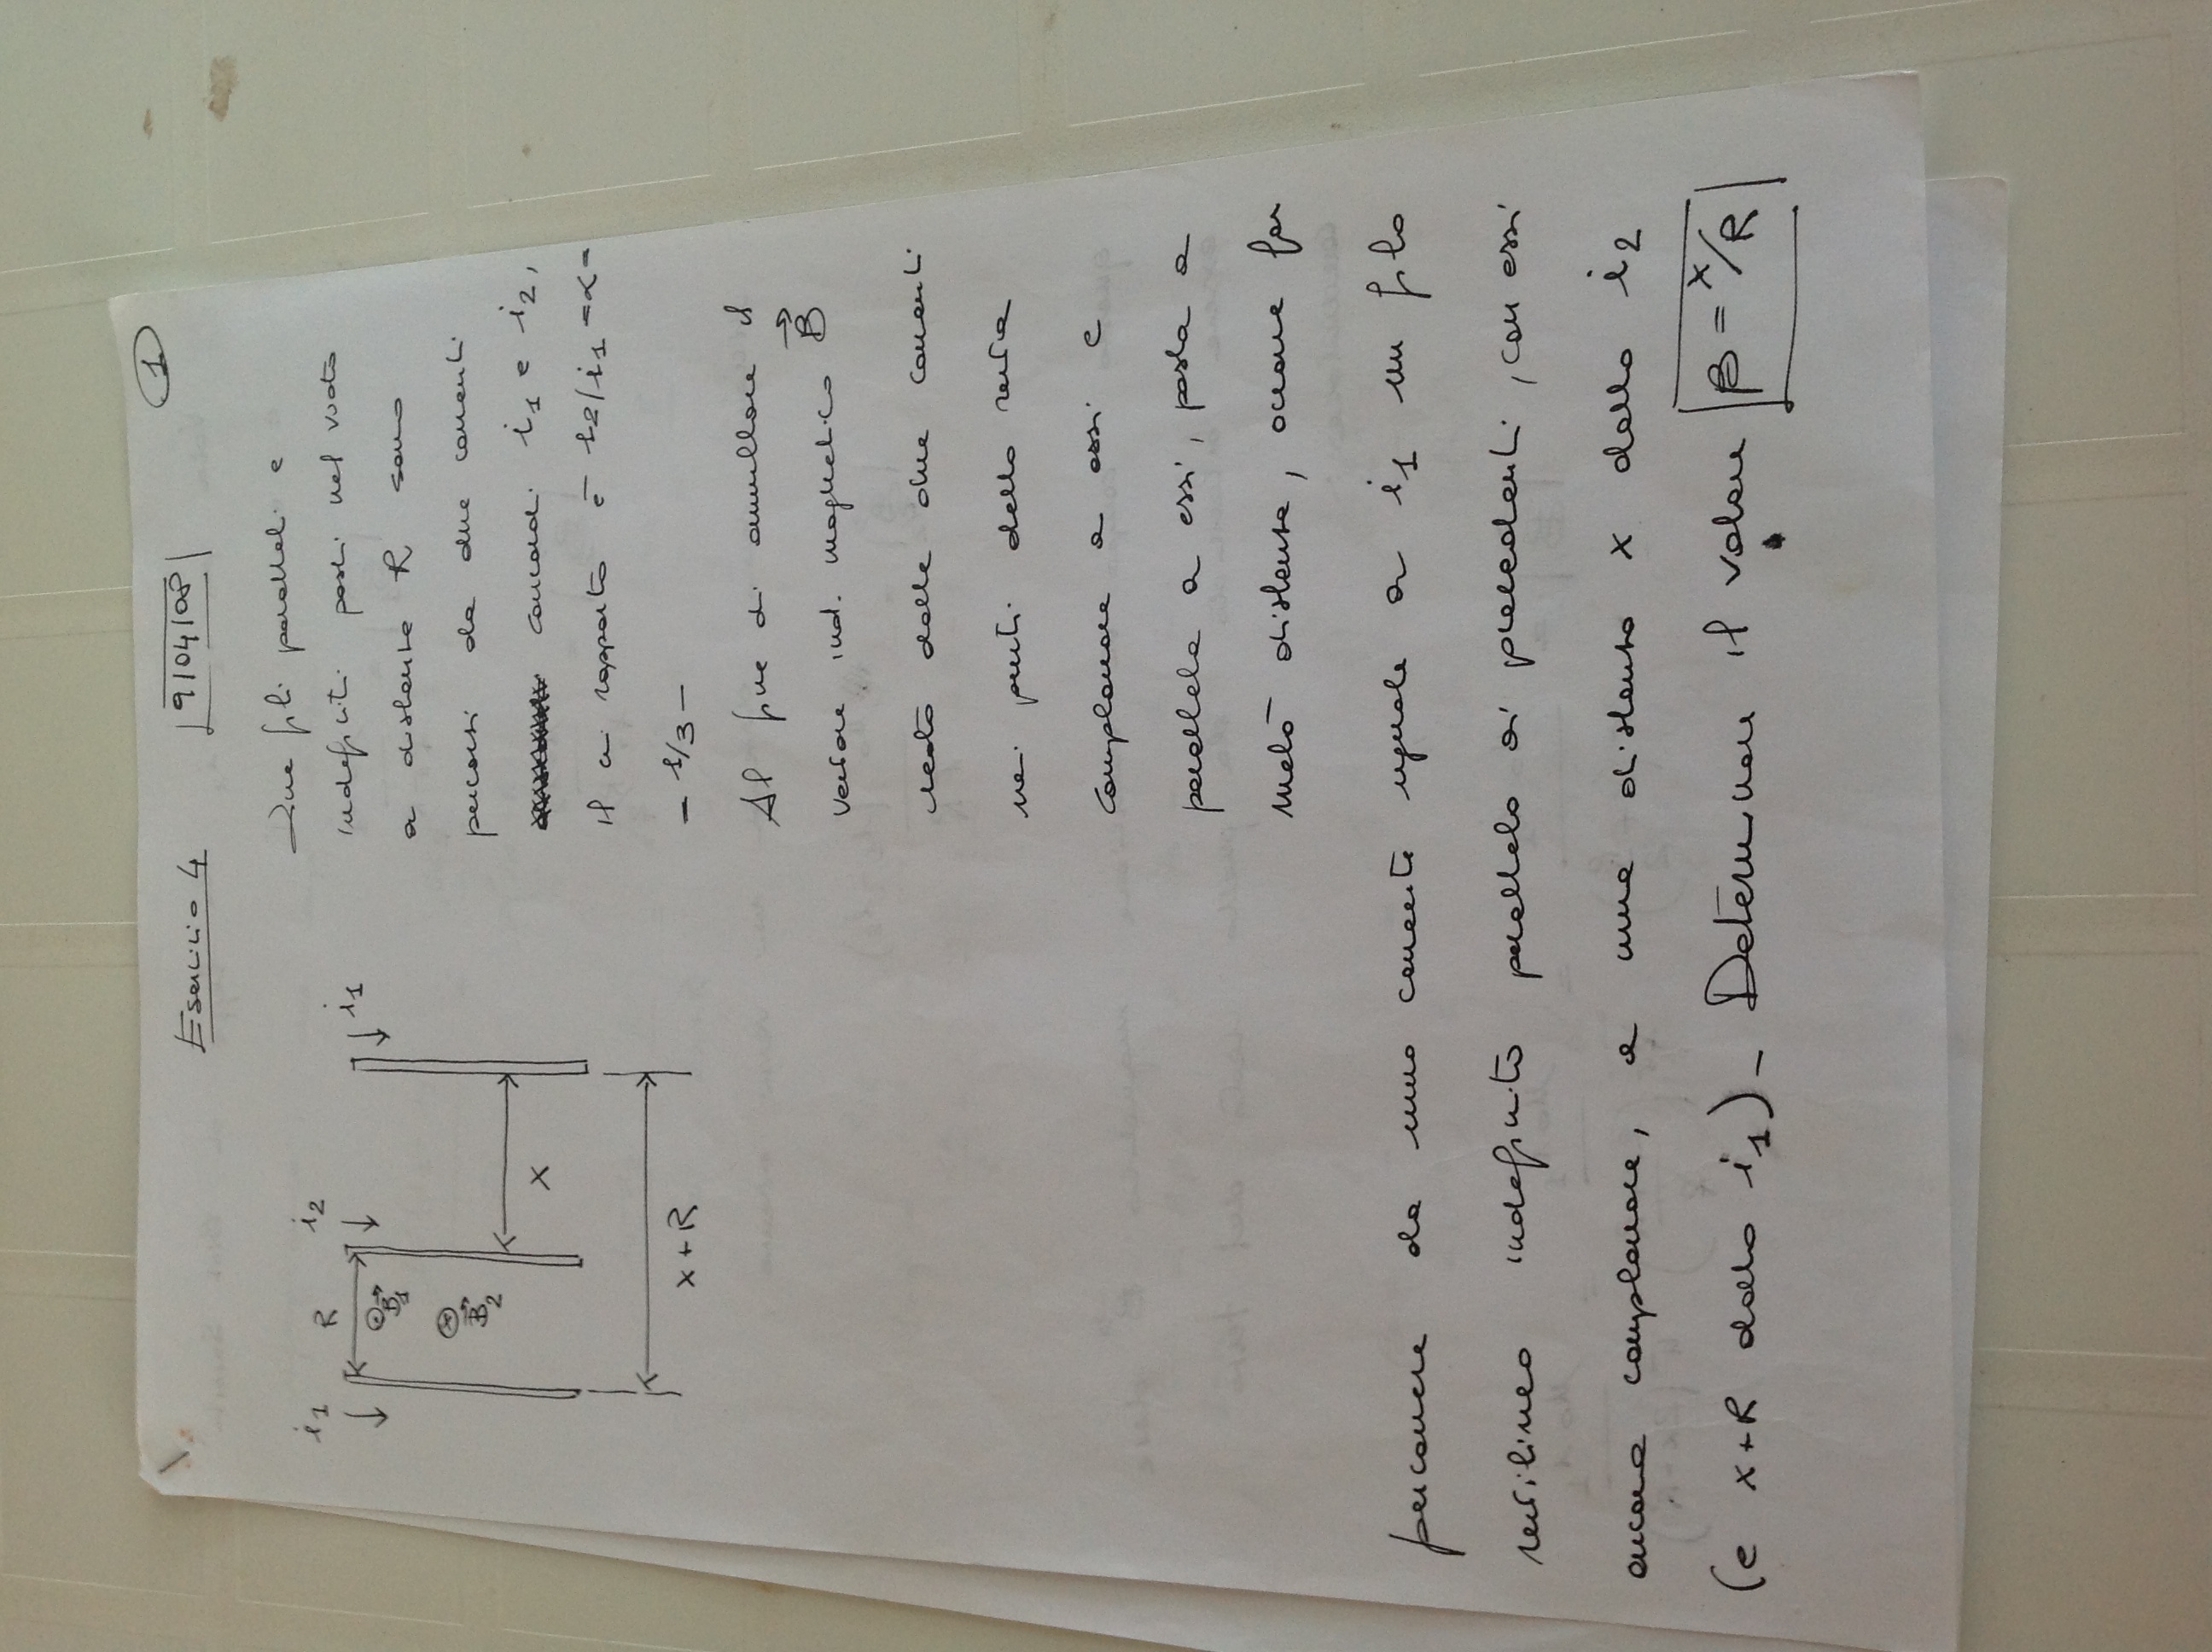 1
Esercizio 4 9/04/08
i1 R i2 i1
B1
B2
x
x+R
Due fili paralleli e
indefiniti posti nel vuoto
a distanza R sono
percorsi da due correnti
concordi i1 e i2,
il cui rapporto è i2/i1 =α=
- 1/3 -
Al fine di annullare il
vettore ind. magnetico B
creato dalle due correnti
nei punti della retta
complanare a essi e
parallela a essi, posta a
metà distanza, occorre far
percorrere da una corrente uguale a i1 un filo
rettilineo indefinito parallelo ai precedenti, con essi
ancora complanare, a una distanza x dalla i2
(e x+R dalla i1)- Determinare il valore β = x/R